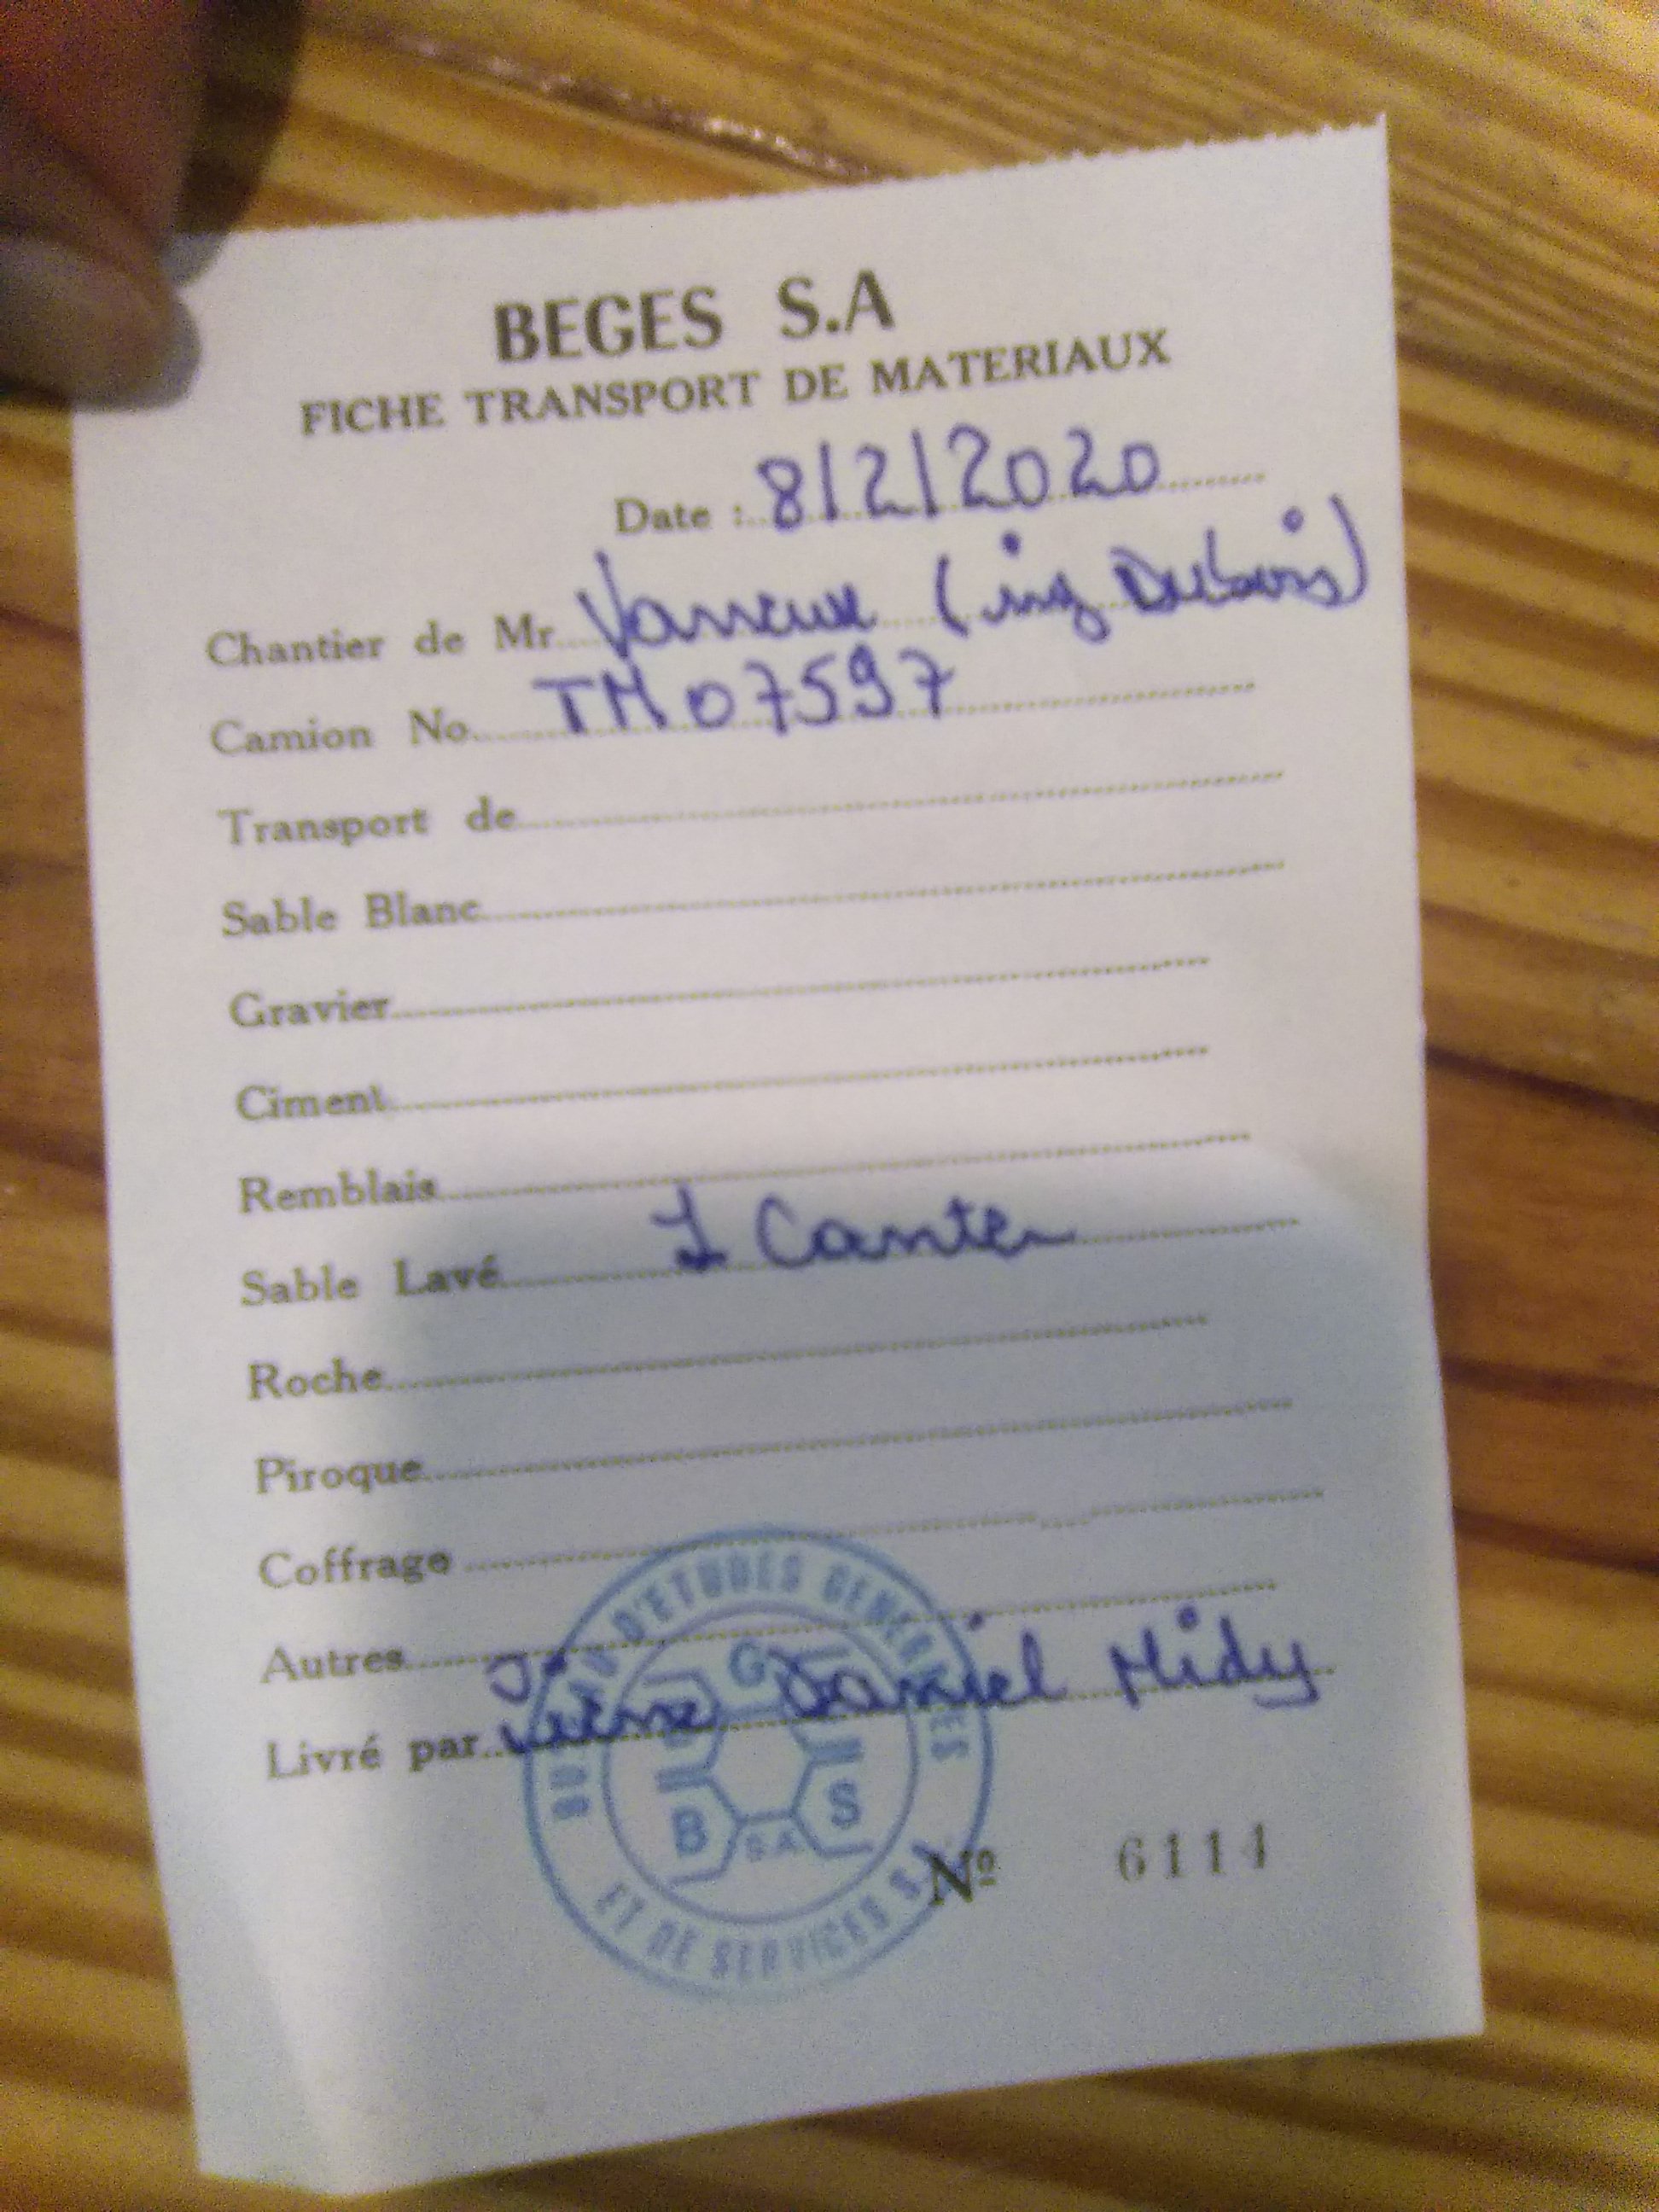 BEGES S.A
FICHE TRANSPORT DE MATERIAUX
Date : 8/2/2020
Chantier de Mr Varreux (ing Dubois)
Camion No. TM07597
Transport de
Sable Blanc
Gravier
Ciment
Remblais
Sable Lavé 1 Canter
Roche
Piroque
Coffrage
Autres
Livré par Daniel Midy
BUREAU D'ETUDES GENERALES
ET DE SERVICES S.A
G
B S
S.A
Nº 6114